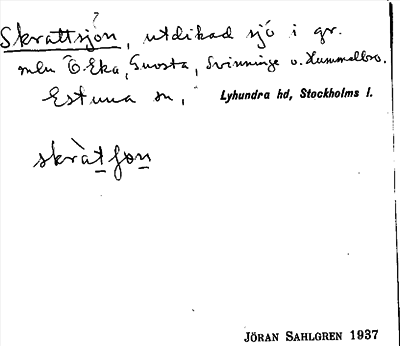 ?
Skrattsjön, utdikad sjö i gr.
mln Ö. Eka, Snösta, Svinninge o. Hummelbro.
Estuna sn, Lyhundra hd, Stockholms l.
skràtʃon
JÖRAN SAHLGREN 1937